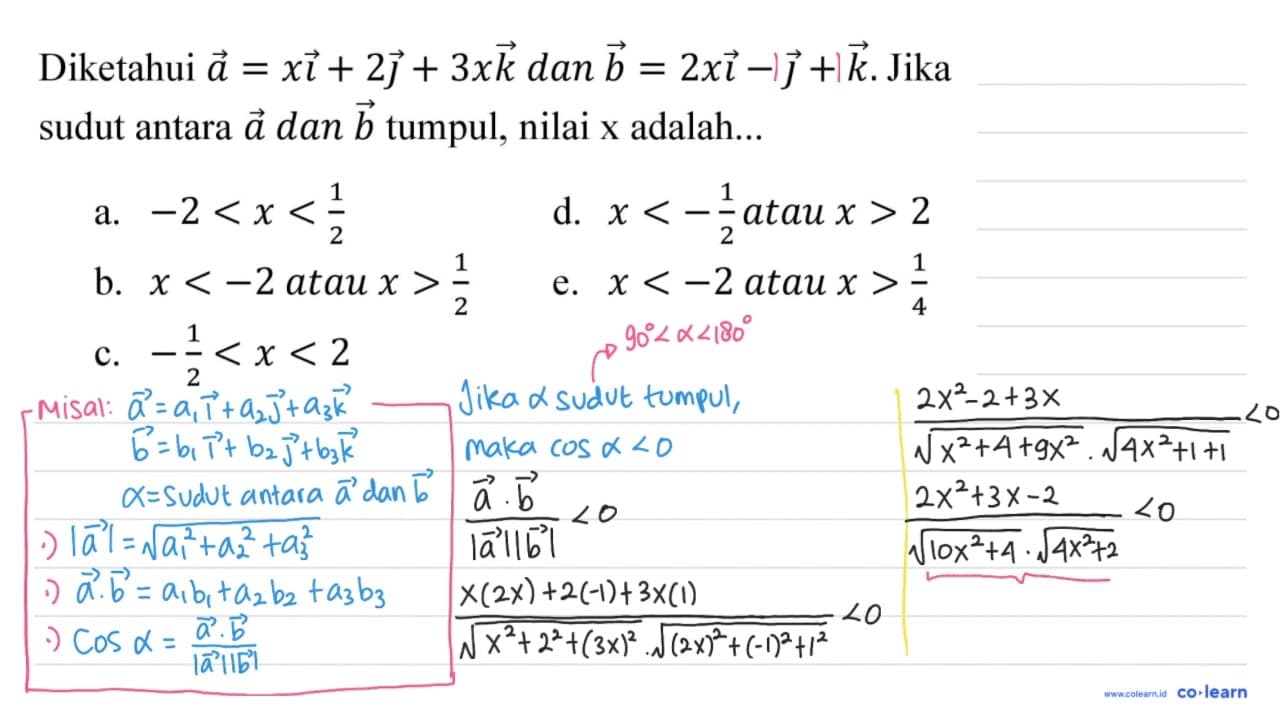 Diketahui a⃗ = xi⃗ + 2j⃗ + 3xk⃗ dan b⃗ = 2xi⃗ −1j⃗ +1k⃗. Jika
sudut antara a⃗ dan b⃗ tumpul, nilai x adalah...
a. −2 < x < 1/2
d. x < −1/2 atau x > 2
b. x < −2 atau x > 1/2
e. x < −2 atau x > 1/4
c. −1/2 < x < 2
90° < α < 180°
Misal: a⃗ = a₁i⃗ + a₂j⃗ + a₃k⃗
b⃗ = b₁i⃗ + b₂j⃗ + b₃k⃗
α = Sudut antara a⃗ dan b⃗
•) |a⃗| = √(a₁² + a₂² + a₃²)
•) a⃗.b⃗ = a₁b₁ + a₂b₂ + a₃b₃
•) Cos α = a⃗.b⃗ / |a⃗||b⃗|
Jika α sudut tumpul,
maka cos α < 0
a⃗ . b⃗ / |a⃗||b⃗| < 0
x(2x) + 2(-1) + 3x(1) / √(x² + 2² + (3x)²) . √((2x)² + (-1)² + 1²) < 0
2x² - 2 + 3x / √(x² + 4 + 9x²) . √(4x² + 1 + 1) < 0
2x² + 3x - 2 / √(10x² + 4) . √(4x² + 2) < 0
www.colearn.id co·learn